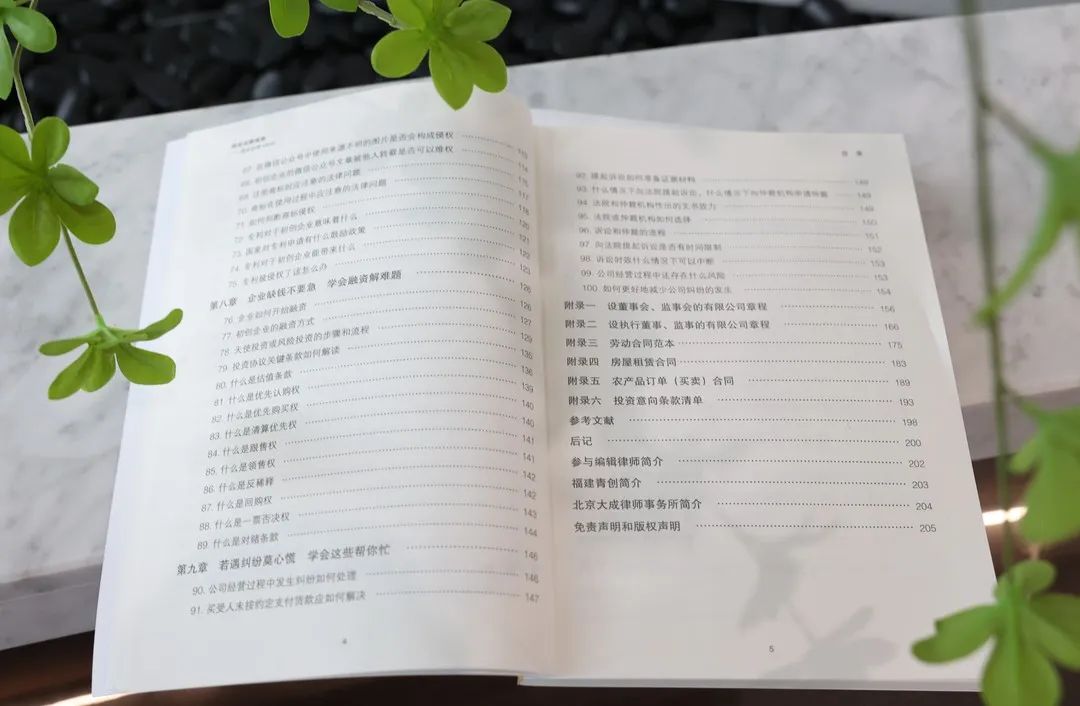 67. 在微信公众号中使用来源不明的图片是否会构成侵权 113
68. 初创企业的微信公众号文章被他人转载是否可以维权 114
69. 注册商标时应注意的法律问题 115
70. 商标在使用过程中应注意的法律问题 117
71. 如何判断商标侵权 118
72. 专利对于初创企业意味着什么 120
73. 国家对专利申请有什么鼓励政策 121
74. 专利对于初创企业能带来什么 122
75. 专利被侵权了该怎么办 123
第八章 企业缺钱不要急 学会融资解难题 126
76. 企业如何开始融资 126
77. 初创企业的融资方式 127
78. 天使投资或风险投资的步骤和流程 129
79. 投资协议关键条款如何解读 135
80. 什么是估值条款 136
81. 什么是优先认购权 139
82. 什么是优先购买权 140
83. 什么是清算优先权 140
84. 什么是跟售权 141
85. 什么是领售权 141
86. 什么是反稀释 142
87. 什么是回购权 142
88. 什么是一票否决权 143
89. 什么是对赌条款 144
第九章 若遇纠纷莫心慌 学会这些帮你忙 146
90. 公司经营过程中发生纠纷如何处理 146
91. 买受人未按约定支付货款应如何解决 147
4
目 录
92. 提起诉讼如何准备证据材料 148
93. 什么情况下向法院提起诉讼，什么情况下向仲裁机构申请仲裁 149
94. 法院和仲裁机构作出的文书效力 149
95. 法院或仲裁机构如何选择 150
96. 诉讼和仲裁的流程 151
97. 向法院提起诉讼是否有时间限制 152
98. 诉讼时效什么情况下可以中断 153
99. 公司经营过程中还存在什么风险 153
100. 如何更好地减少公司纠纷的发生 154
附录一 设董事会、监事会的有限公司章程 156
附录二 设执行董事、监事的有限公司章程 166
附录三 劳动合同范本 175
附录四 房屋租赁合同 183
附录五 农产品订单（买卖）合同 189
附录六 投资意向条款清单 193
参考文献 198
后记 200
参与编辑律师简介 202
福建青创简介 203
北京大成律师事务所简介 204
免责声明和版权声明 205
5